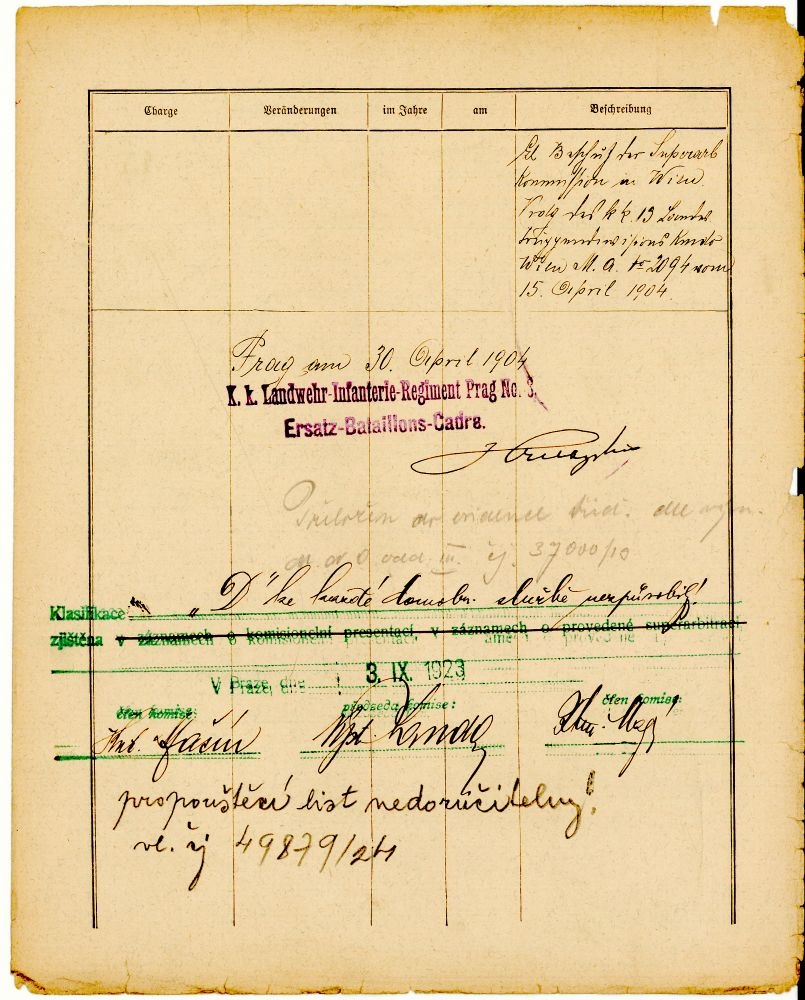 Charge Veränderungen im Jahre am Beschreibung
Beschuß der Superarb
Kommission in Wien.
des k. k. 13 Landw
Kmdo
Wien M. A. No 2094 vom
15. April 1904.
Prag am 30. April 1904
K. k. Landwehr-Infanterie-Regiment Prag No. 8.
Ersatz-Bataillons-Cadre.
Přiložen do evidence dle
odd. III. čj. 37000/19
„D“ ke každé domobr. službě nezpůsobilý!
Klasifikace
zjištěna v záznamech o komisionelní presentaci, v záznamech o provedené superarbitraci
V Praze, dne 3. IX. 1923
člen komise: předseda komise: člen komise:
propouštěcí list nedoručitelný!
vl. čj 49879/24